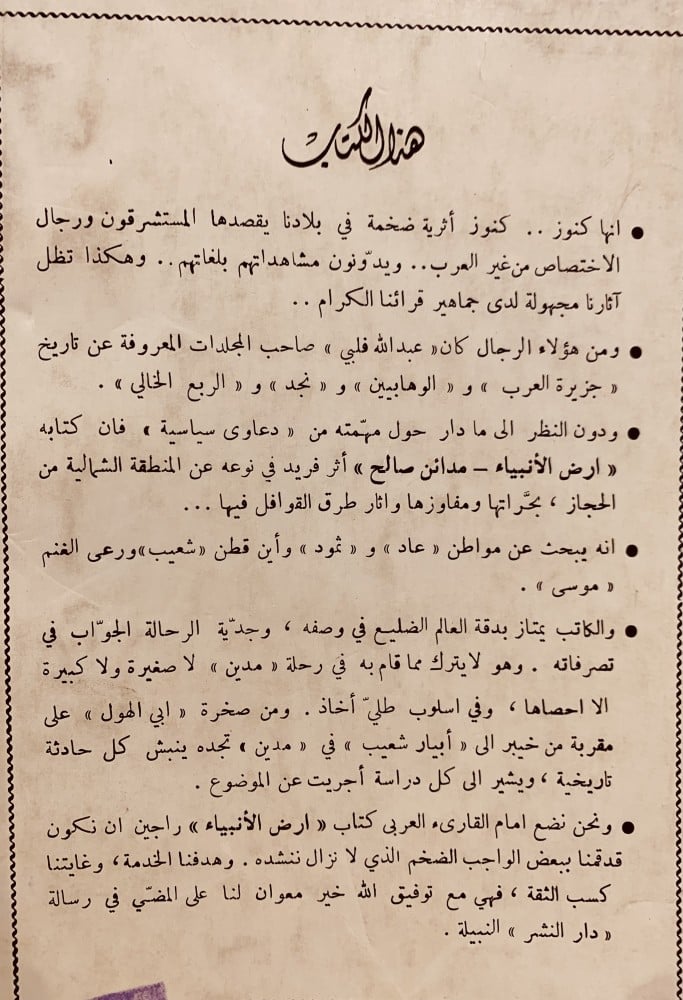 هذا الكتاب
● انها كنوز .. كنوز أثرية ضخمة في بلادنا يقصدها المستشرقون ورجال
الاختصاص من غير العرب.. ويدوّنون مشاهداتهم بلغاتهم.. وهكذا تظل
آثارنا مجهولة لدى جماهير قرائنا الكرام ..
● ومن هؤلاء الرجال كان « عبدالله فلبي » صاحب المجلدات المعروفة عن تاريخ
« جزيرة العرب » و « الوهابيين » و « نجد » و « الربع الخالي » .
● ودون النظر الى ما دار حول مهمّته من « دعاوى سياسية » فان كتابه
« ارض الأنبياء – مدائن صالح » أثر فريد في نوعه عن المنطقة الشمالية من
الحجاز ، بحَرّاتها ومفاوزها واثار طرق القوافل فيها ...
● انه يبحث عن مواطن « عاد » و « ثمود » وأين قطن « شعيب » ورعى الغنم
« موسى » .
● والكاتب يمتاز بدقة العالم الضليع في وصفه ، وجدّية الرحالة الجوّاب في
تصرفاته . وهو لا يترك مما قام به في رحلة « مدين » لا صغيرة ولا كبيرة
الا احصاها ، وفي اسلوب طليّ أخاذ . ومن صخرة « ابي الهول » على
مقربة من خيبر الى « أبيار شعيب » في « مدين » تجده ينبش كل حادثة
تاريخية ، ويشير الى كل دراسة أجريت عن الموضوع .
● ونحن نضع امام القارىء العربى كتاب « ارض الأنبياء » راجين ان نكون
قد قمنا ببعض الواجب الضخم الذي لا نزال ننشده . وهدفنا الخدمة ، وغايتنا
كسب الثقة ، فهي مع توفيق الله خير معوان لنا على المضيّ في رسالة
« دار النشر » النبيلة .